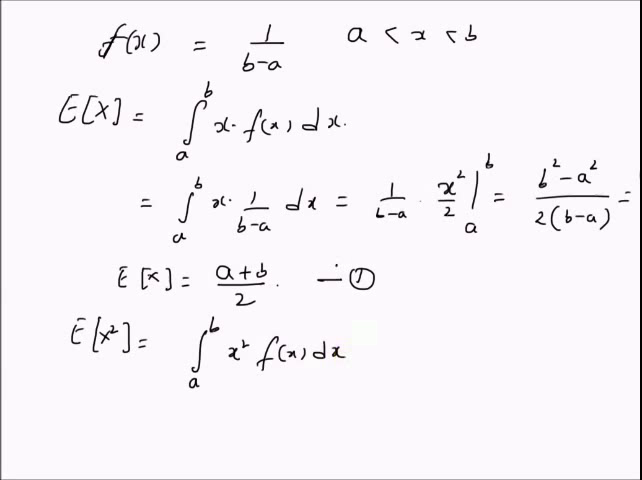 f(x) = 1/(b-a) a < x < b
E[X] = ∫_a^b x. f(x) dx.
= ∫_a^b x. 1/(b-a) dx = 1/(b-a) . x²/2 |_a^b = (b² - a²)/(2(b-a)) =
E[x] = (a+b)/2. — ①
E[X²] = ∫_a^b x² f(x) dx